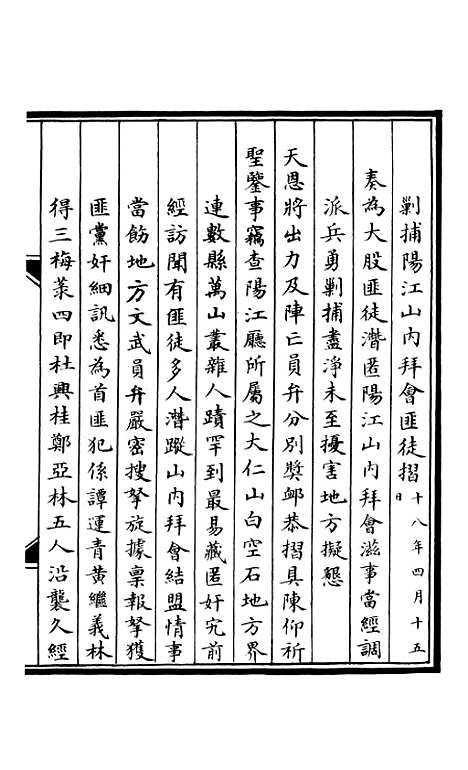 剿捕陽江山內拜會匪徒摺十八年四月十五日
奏為大股匪徒潛匿陽江山內拜會滋事當經調
派兵勇剿捕盡淨未至擾害地方擬懇
天恩將出力及陣亡員弁分別獎衈恭摺具陳仰祈
聖鑒事竊查陽江廳所屬之大仁山白空石地方界
連數縣萬山叢雜人蹟罕到最易藏匿奸宄前
經訪聞有匪徒多人潛蹤山內拜會結盟情事
當飭地方文武員弁嚴密搜拏旋據稟報拏獲
匪黨奸細訊悉為首匪犯係譚運青黃繼義林
得三梅葉四即杜興桂鄭亞林五人沿襲久經